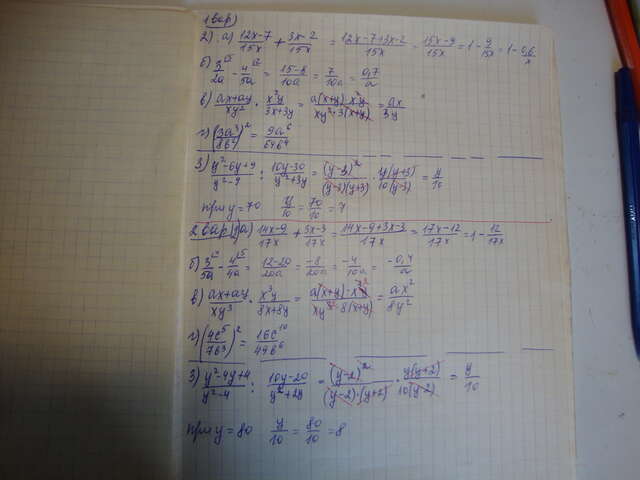 1 вар)
2) а) (12x-7)/15x + (3x-2)/15x = (12x-7+3x-2)/15x = (15x-9)/15x = 1 - 9/15x = 1 - 0,6/x
б) 3/2a - 4/5a = (15-8)/10a = 7/10a = 0,7/a
в) (ax+ay)/xy² · x²y/(3x+3y) = a(x+y)·x²y/(xy²·3(x+y)) = ax/3y
г) (3a³/8b²)² = 9a⁶/64b⁴
3) (y²-6y+9)/(y²-9) : (10y-30)/(y²+3y) = (y-3)²/((y-3)(y+3)) · y(y+3)/10(y-3) = y/10
при y = 70 y/10 = 70/10 = 7
2 вар) а) (14x-9)/17x + (3x-3)/17x = (14x-9+3x-3)/17x = (17x-12)/17x = 1 - 12/17x
б) 3/5a - 4/4a = (12-20)/20a = -8/20a = -4/10a = -0,4/a
в) (ax+ay)/xy³ · x³y/(8x+8y) = a(x+y)·x³y/(xy³·8(x+y)) = ax²/8y²
г) (4c⁵/7b³)² = 16c¹⁰/49b⁶
3) (y²-4y+4)/(y²-4) : (10y-20)/(y²+2y) = (y-2)²/((y-2)·(y+2)) · y(y+2)/10(y-2) = y/10
при y = 80 y/10 = 80/10 = 8